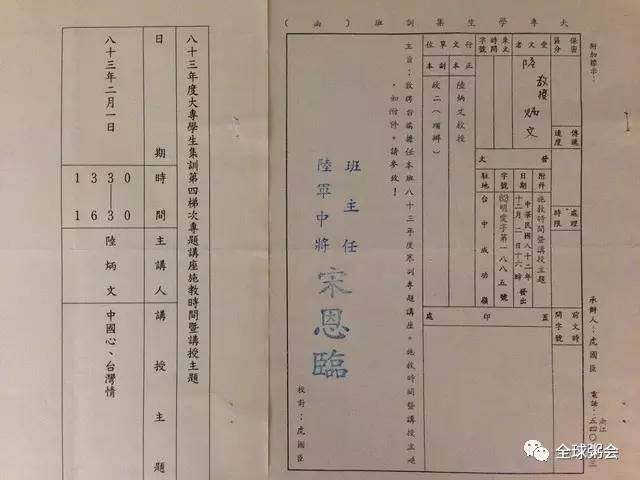 大專學生集訓班(函)
附加標示：
保密區分
傳遞速度
處理時限
前文時間字號
承辦人：虎國臣
電話：
受文者
陸教授炳文
來文
時間
字號
行文單位
正本
陸炳文教授
副本
政二（項辦）
發文
附件
施教時間暨講授主題
日期
中華民國八十二年十二月二日十六時發出
字號
明愛字第一八八五號
駐地
台中成功嶺
蓋印處
主旨：敦聘台端擔任本班八十三年度寒訓專題講座。施教時間暨講授主題
，如附件。請參致！
班主任
陸軍中將宋恩臨
校對：虎國臣
八十三年度大專學生集訓第四梯次專題講座施教時間暨講授主題
日期
時間
主講人
講授主題
八十三年二月一日
1330
|
1630
陸炳文
中國心、台灣情
全球粥会